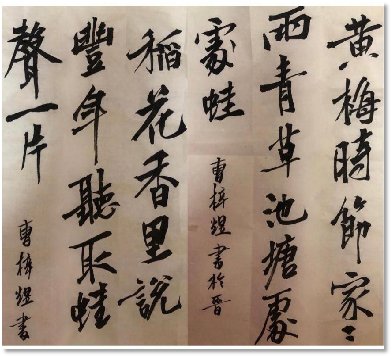 黄梅時節家〻
雨青草池塘處
處蛙
曹梓煜書於晉
稻花香里說
豐年聽取蛙
聲一片
曹梓煜書